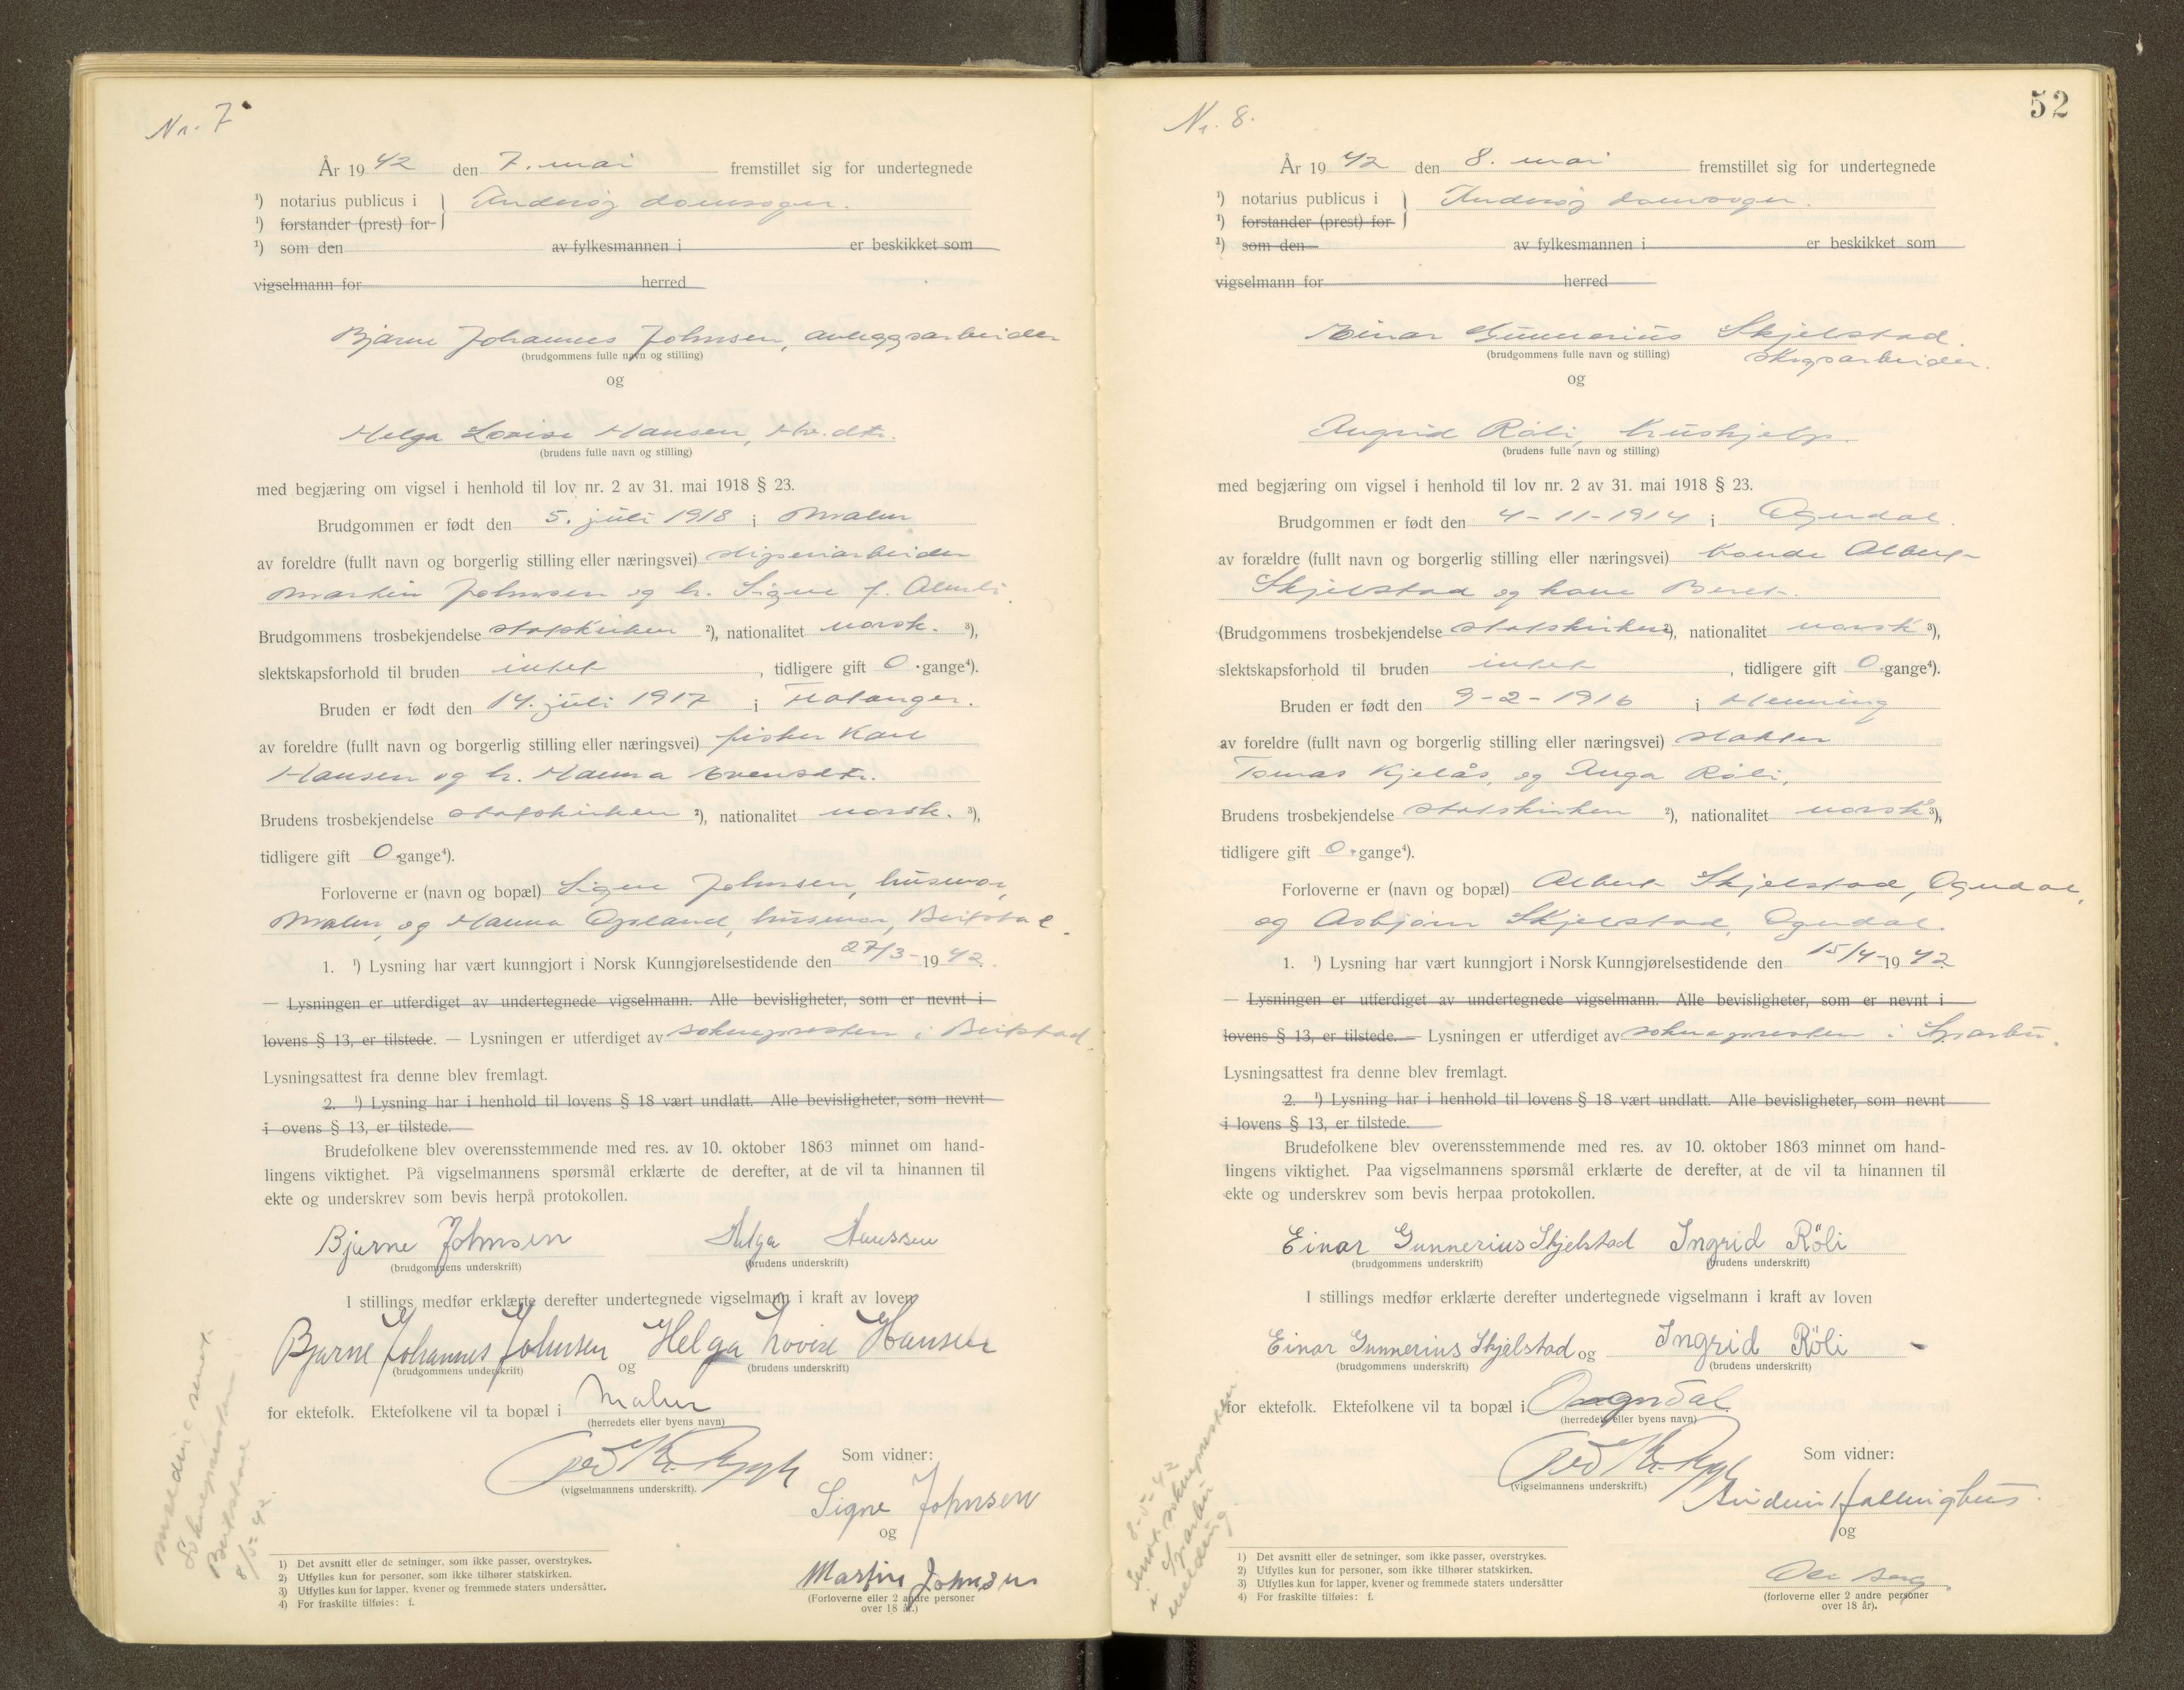 Nr. 7
År 1942 den 7. mai fremstillet sig for undertegnede
¹) notarius publicus i } Inderøy domsogn.
¹) forstander (prest) for
¹) som den av fylkesmannen i er beskikket som
vigselmann for herred
Bjarne Johannes Johnsen, anleggsarbeider
(brudgommens fulle navn og stilling)
og
Helga Lovise Hansen, Hr. dtr.
(brudens fulle navn og stilling)
med begjæring om vigsel i henhold til lov nr. 2 av 31. mai 1918 § 23.
Brudgommen er født den 5. juli 1918 i Malm
av foreldre (fullt navn og borgerlig stilling eller næringsvei) sliperiarbeider
Martin Johnsen og h. Signe f. Almli.
Brudgommens trosbekjendelse statskirken ²), nationalitet norsk. ³),
slektskapsforhold til bruden intet , tidligere gift 0 gange⁴).
Bruden er født den 14. juli 1917 i Flatanger.
av foreldre (fullt navn og borgerlig stilling eller næringsvei) fisker Karl
Hansen og h. Hanna Evensdtr.
Brudens trosbekjendelse statskirken ²), nationalitet norsk. ³),
tidligere gift 0 gange⁴).
Forloverne er (navn og bopæl) Signe Johnsen, husmor,
Malm, og Hanna Opland, husmor, Beitstad.
1. ¹) Lysning har vært kunngjort i Norsk Kunngjørelsestidende den 27/3- 1942.
— Lysningen er utferdiget av undertegnede vigselmann. Alle bevisligheter, som er nevnt i
lovens § 13, er tilstede. — Lysningen er utferdiget av soknepresten i Beitstad.
Lysningsattest fra denne blev fremlagt.
2. ¹) Lysning har i henhold til lovens § 18 vært undlatt. Alle bevisligheter, som nevnt
i ovens § 13, er tilstede.
Brudefolkene blev overensstemmende med res. av 10. oktober 1863 minnet om hand-
lingens viktighet. På vigselmannens spørsmål erklærte de derefter, at de vil ta hinannen til
ekte og underskrev som bevis herpå protokollen.
Bjarne Johnsen Helga Hanssen
(brudgommens underskrift) (brudens underskrift)
I stillings medfør erklærte derefter undertegnede vigselmann i kraft av loven
Bjarne Johannes Johnsen og Helga Lovise Hansen
(brudgommens underskrift) (brudens underskrift)
for ektefolk. Ektefolkene vil ta bopæl i Malm
(herredets eller byens navn)
Som vidner:
(vigselmannens underskrift).
Signe Johnsen
og
Martin Johnsen
(Forloverne eller 2 andre personer
over 18 år.)
melding sendt
Soknepresten i
Beitstad
8/5-42.
1) Det avsnitt eller de setninger, som ikke passer, overstrykes.
2) Utfylles kun for personer, som ikke tilhører statskirken.
3) Utfylles kun for lapper, kvener og fremmede staters undersåtter.
4) For fraskilte tilføies: f.
52
Nr. 8.
År 1942 den 8. mai fremstillet sig for undertegnede
¹) notarius publicus i } Inderøy domsogn.
¹) forstander (prest) for
¹) som den av fylkesmannen i er beskikket som
vigselmann for herred
Einar Gunnerius Skjelstad.
skogsarbeider.
(brudgommens fulle navn og stilling)
og
Ingrid Röli, hushjelp.
(brudens fulle navn og stilling)
med begjæring om vigsel i henhold til lov nr. 2 av 31. mai 1918 § 23.
Brudgommen er født den 4-11-1914 i Ogndal.
av forældre (fullt navn og borgerlig stilling eller næringsvei) bonde Albert
Skjelstad og kone Beret.
(Brudgommens trosbekjendelse statskirken ²), nationalitet norsk ³),
slektskapsforhold til bruden intet , tidligere gift 0 gange⁴).
Bruden er født den 9-2-1916 i Henning
av foreldre (fullt navn og borgerlig stilling eller næringsvei)
Tomas Kjelås, og Inga Röli.
Brudens trosbekjendelse statskirken ²), nationalitet norsk ³),
tidligere gift 0 gange⁴).
Forloverne er (navn og bopæl) Albert Skjelstad, Ogndal,
og Asbjørn Skjelstad, Ogndal.
1. ¹) Lysning har vært kunngjort i Norsk Kunngjørelsestidende den 15/4- 1942
— Lysningen er utferdiget av undertegnede vigselmann. Alle bevisligheter, som er nevnt i
lovens § 13, er tilstede. — Lysningen er utferdiget av soknepresten i Sparbu.
Lysningsattest fra denne blev fremlagt.
2. ¹) Lysning har i henhold til lovens § 18 vært undlatt. Alle bevisligheter, som nevnt
i lovens § 13, er tilstede.
Brudefolkene blev overensstemmende med res. av 10. oktober 1863 minnet om hand-
lingens viktighet. Paa vigselmannens spørsmål erklærte de derefter, at de vil ta hinannen til
ekte og underskrev som bevis herpaa protokollen.
Einar Gunnerius Skjelstad Ingrid Röli
(brudgommens underskrift) (brudens underskrift)
I stillings medfør erklærte derefter undertegnede vigselmann i kraft av loven
Einar Gunnerius Skjelstad og Ingrid Röli
(brudgommens underskrift) (brudens underskrift)
for ektefolk. Ektefolkene vil ta bopæl i Ogndal
(herredets eller byens navn)
Som vidner:
(vigselmannens underskrift.)
og
(forloverne eller 2 andre personer
over 18 år).
8-5-42
Sendt soknepresten
i Sparbu
melding
1) Det avsnitt eller de setninger, som ikke passer, overstrykes.
2) Utfylles kun for personer, som ikke tilhører statskirken.
3) Utfylles kun for lapper, kvener og fremmede staters undersåtter
4) For fraskilte tilføies: f.